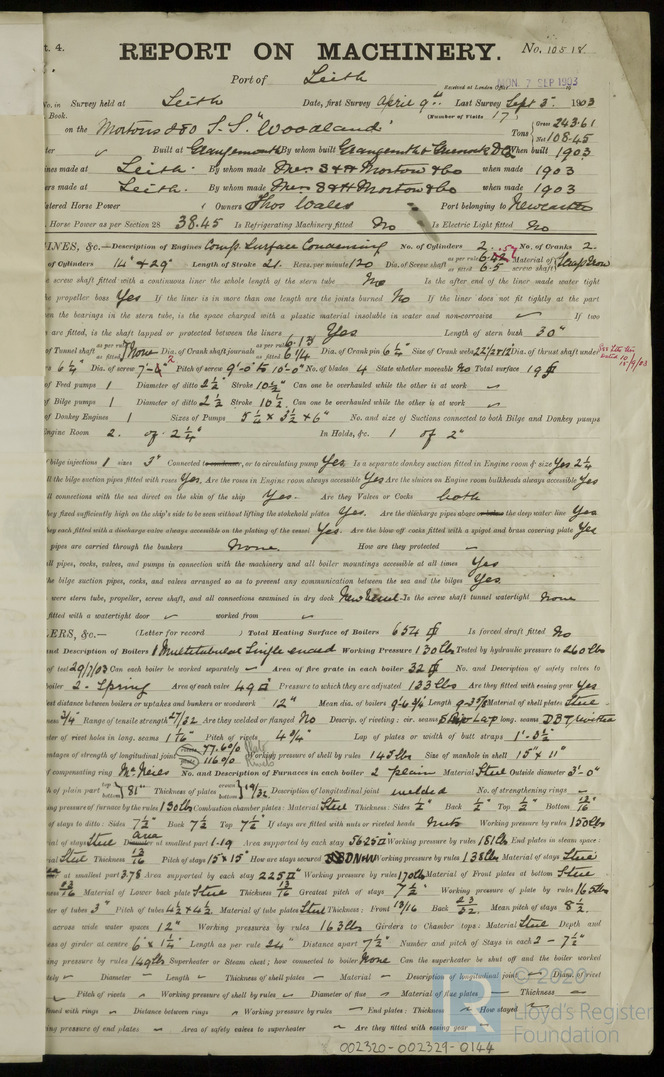 t. 4.
REPORT ON MACHINERY.
No. 10518
Port of Leith
Received at London Office MON. 7 SEP 1903
No. in Survey held at Leith Date, first Survey April 9th Last Survey Sept 3. 1903
Book. (Number of Visits 17)
on the Mortons 280 S.S. "Woodland" Tons { Gross 243.61 Net 108.45
Built at Grangemouth By whom built Grangemth & Greenock DCo When built 1903
nes made at Leith. By whom made Mess S & H Morton & Co when made 1903
ers made at Leith. By whom made Mess S & H Morton & Co when made 1903
stered Horse Power Owners Thos Wales Port belonging to Newcastle
Horse Power as per Section 28 38.45 Is Refrigerating Machinery fitted No Is Electric Light fitted No
INES, &c.—Description of Engines Comp. Surface Condensing No. of Cylinders 2 No. of Cranks 2.
of Cylinders 14" & 29" Length of Stroke 21 Revs. per minute 120 Dia. of Screw shaft as per rule as fitted 6.5 Material of screw shaft Scrap Iron
e screw shaft fitted with a continuous liner the whole length of the stern tube No Is the after end of the liner made water tight
he propeller boss Yes If the liner is in more than one length are the joints burned No If the liner does not fit tightly at the part
n the bearings in the stern tube, is the space charged with a plastic material insoluble in water and non-corrosive If two
are fitted, is the shaft lapped or protected between the liners Yes Length of stern bush 30"
of Tunnel shaft as per rule as fitted None Dia. of Crank shaft journals as per rule 6.13 as fitted 6 1/4 Dia. of Crank pin 6 1/4" Size of Crank webs Dia. of thrust shaft under
6 1/4" Dia. of screw Pitch of screw 9'-0" to 10'-0" No. of blades 4 State whether moveable No Total surface 19
of Feed pumps 1 Diameter of ditto 2 1/2" Stroke 10 1/2" Can one be overhauled while the other is at work
of Bilge pumps 1 Diameter of ditto 2 1/2 Stroke 10 1/2 Can one be overhauled while the other is at work
of Donkey Engines 1 Sizes of Pumps 5 1/4 x 3 1/2 x 6" No. and size of Suctions connected to both Bilge and Donkey pumps
ngine Room 2. of 2 1/4" In Holds, &c. 1 of 2"
bilge injections 1 sizes 3" Connected to condenser, or to circulating pump Yes Is a separate donkey suction fitted in Engine room & size Yes 2 1/4
ll the bilge suction pipes fitted with roses Yes. Are the roses in Engine room always accessible Yes Are the sluices on Engine room bulkheads always accessible Yes
ll connections with the sea direct on the skin of the ship Yes. Are they Valves or Cocks both
they fixed sufficiently high on the ship's side to be seen without lifting the stokehold plates Yes. Are the discharge pipes above or below the deep water line Yes
they each fitted with a discharge valve always accessible on the plating of the vessel Yes. Are the blow off cocks fitted with a spigot and brass covering plate Yes
pipes are carried through the bunkers None. How are they protected —
ll pipes, cocks, valves, and pumps in connection with the machinery and all boiler mountings accessible at all times Yes
he bilge suction pipes, cocks, and valves arranged so as to prevent any communication between the sea and the bilges Yes
were stern tube, propeller, screw shaft, and all connections examined in dry dock New Vessel Is the screw shaft tunnel watertight none
fitted with a watertight door worked from
ERS, &c.— (Letter for record ) Total Heating Surface of Boilers 654 Is forced draft fitted No
and Description of Boilers 1 Multitubular Single ended Working Pressure 130 lbs Tested by hydraulic pressure to 260 lbs
of test 29/7/03 Can each boiler be worked separately — Area of fire grate in each boiler 32 No. and Description of safety valves to
boiler 2 - Spring Area of each valve 4.9 Pressure to which they are adjusted 133 lbs Are they fitted with easing gear Yes
est distance between boilers or uptakes and bunkers or woodwork 12" Mean dia. of boilers 9'-6 3/4" Length 9-3 5/8 Material of shell plates Steel
ss 3/4" Range of tensile strength 27/32 Are they welded or flanged No Descrip. of riveting: cir. seams Lap long. seams DBT riveted
ter of rivet holes in long. seams 1 1/16" Pitch of rivets 4 3/4" Lap of plates or width of butt straps 1'-3 1/2"
entages of strength of longitudinal joint 77.6% plate 116% rivets Working pressure of shell by rules 145 lbs Size of manhole in shell 15" x 11"
of compensating ring McNeils No. and Description of Furnaces in each boiler 2 plain Material Steel Outside diameter 3'-0"
th of plain part top bottom } 81" Thickness of plates crown bottom } 19/32 Description of longitudinal joint welded No. of strengthening rings —
ing pressure of furnace by the rules 130 lbs Combustion chamber plates: Material Steel Thickness: Sides 1/2" Back 1/2" Top 1/2" Bottom 13/16"
of stays to ditto: Sides 7 1/2" Back 7 1/2 Top 7 1/2" If stays are fitted with nuts or riveted heads Nuts Working pressure by rules 150 lbs
ial of stays Steel area Diameter at smallest part 1.19 Area supported by each stay 56.25 Working pressure by rules 181 lbs End plates in steam space:
ial Steel Thickness 13/16 Pitch of stays 15 x 15" How are stays secured DN&W Working pressure by rules 138 lbs Material of stays Steel
at smallest part 3.78 Area supported by each stay 225 Working pressure by rules 170 lbs Material of Front plates at bottom Steel
ness 13/16 Material of Lower back plate Steel Thickness 13/16 Greatest pitch of stays 7 1/2" Working pressure of plate by rules 165 lbs
ter of tubes 3" Pitch of tubes 4 1/2 x 4 1/2 Material of tube plates Steel Thickness: Front 13/16 Back 23/32 Mean pitch of stays 8 1/2
across wide water spaces 12" Working pressures by rules 163 lbs Girders to Chamber tops: Material Steel Depth and
ess of girder at centre 6" x 1 1/4" Length as per rule 24" Distance apart 7 1/2" Number and pitch of Stays in each 2 - 7 1/2"
ing pressure by rules 149 lbs Superheater or Steam chest; how connected to boiler None Can the superheater be shut off and the boiler worked
tely — Diameter — Length Thickness of shell plates — Material — Description of longitudinal joint — Diam. of rivet
Pitch of rivets Working pressure of shell by rules Diameter of flue Material of flue plates — Thickness —
oned with rings — Distance between rings Working pressure by rules — End plates: Thickness — How stayed
ing pressure of end plates — Area of safety valves to superheater — Are they fitted with easing gear —
© 2020
Lloyd's Register
Foundation
002320-002329-0144